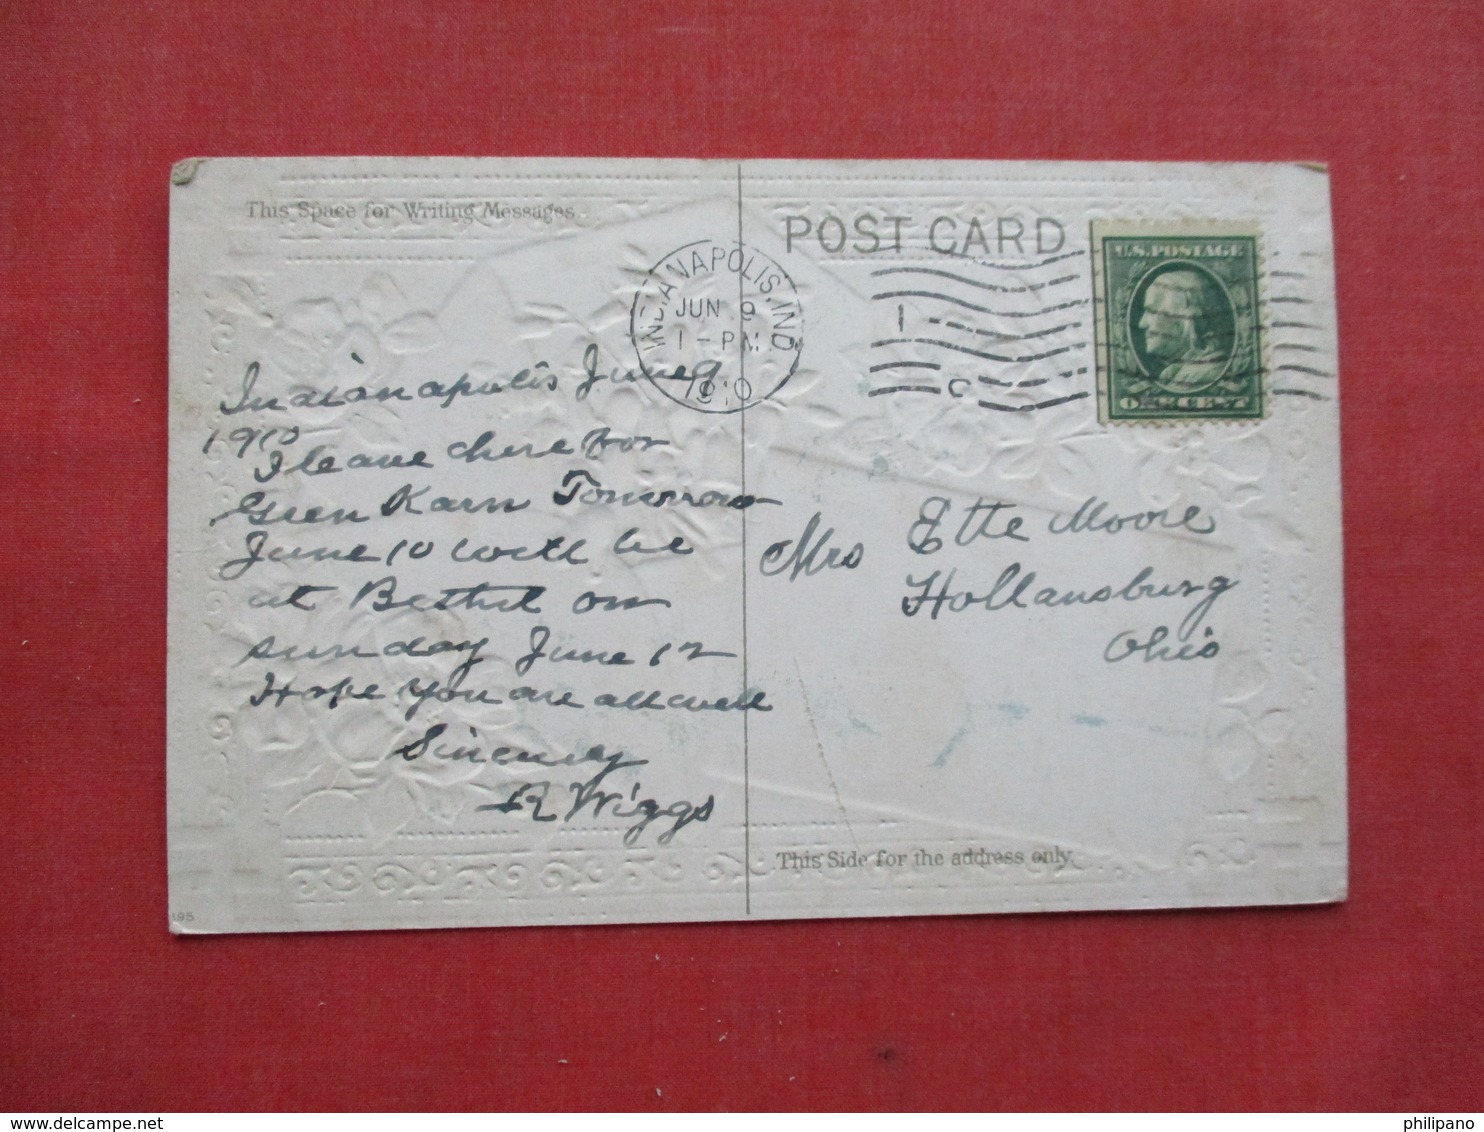 This Space for Writing Messages.
POST CARD
U.S. POSTAGE
ONE CENT
INDIANAPOLIS, IND.
JUN 9
1-PM
1910
1 C
Indianapolis June 9
1910
I leave here for
Karn Tomorrow
June 10 will be
at Bethel on
sunday June 12
Hope you are all well
Sincerely
R Wiggs
Mrs Ette Moore
Hollansburg
Ohio
This Side for the address only.
195
philipano